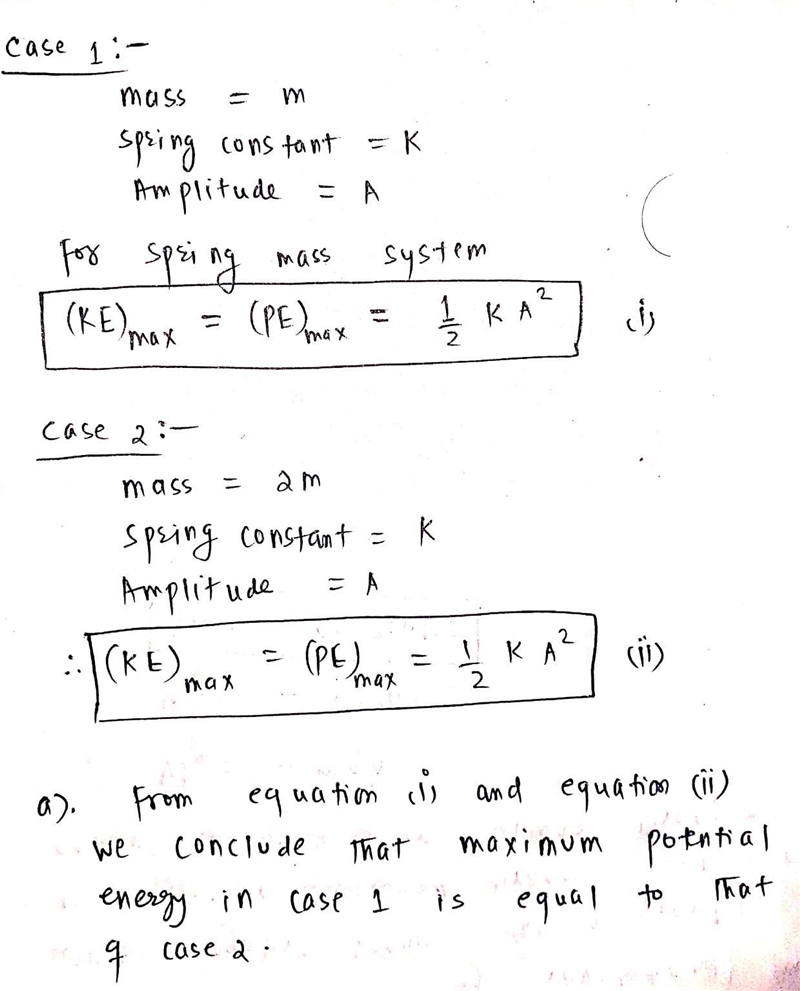 Case 1:-
mass = m
Spring constant = K
Amplitude = A
For spring mass system
(KE)max = (PE)max = 1/2 K A² (i)
Case 2:-
mass = 2m
Spring constant = K
Amplitude = A
∴ (KE)max = (PE)max = 1/2 K A² (ii)
a). From equation (i) and equation (ii)
we conclude that maximum potential
energy in case 1 is equal to that
of case 2.